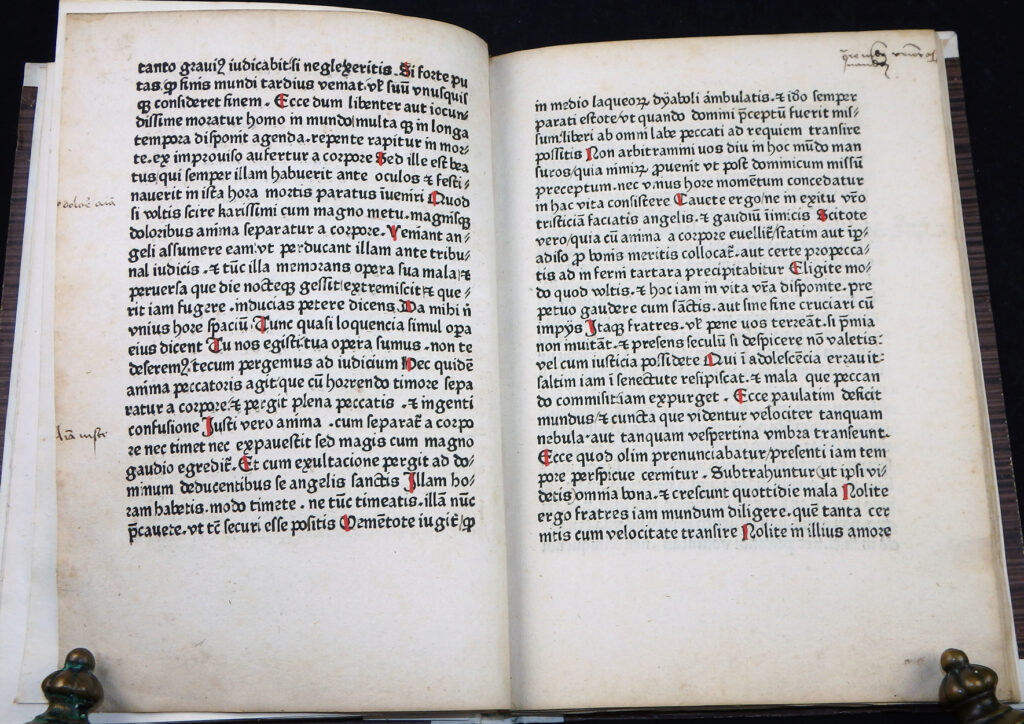 tanto gravi⁹ iudicabit̄ si neglexeritis. Si forte pu
tas ꝙ finis mundi tardius veniat. vł suū vnusquis
qꝫ consideret finem. Ecce dum libenter aut iocun⸗
dissime moratur homo in mundo/multa qꝫ in longa
tempora disponit agenda. repente rapitur in mor⸗
te. ex improuiso aufertur a corpore Sed ille est bea
tus/qui semper illam habuerit ante oculos ⁊ festi⸗
nauerit in ista hora mortis paratus īueniri Quod
si vltis scire karissimi cum magno metu. magnisqꝫ
doloribus anima separatur a corpore. Veniant an⸗
geli assumere eam/vt perducant illam ante tribu⸗
nal iudicis. ⁊ tūc illa memorans opera sua mala/⁊
peruersa que die nocteqꝫ gessit/extremiscit/⁊ que⸗
rit iam fugere. inducias petere dicens. Da mihi ñ
vnius hore spaciū. Tunc quasi loquencia simul opa
eius dicent Tu nos egisti/tua opera sumus. non te
deserem⁹. tecum pergemus ad iudicium Hec quidē
anima peccatoris agit/que cū horrendo timore sepa
ratur a corpore/⁊ pergit plena peccatis. ⁊ ingenti
confusione Justi vero anima. cum separat̄ a corpo
re nec timet nec expauescit sed magis cum magno
gaudio egredit̄. Et cum exultacione pergit ad do⸗
minum deducentibus se angelis sanctis Illam ho⸗
ram habetis. modo timete. ne tūc timeatis. illā nūc
p̄cauete. vt tē securi esse positis Memētote iugit̄/ꝙ
dolor̄ aīa
Aīa iusti
in medio laqueoꝝ dÿaboli ambulatis. ⁊ iđo semper
parati estote/vt quando domini p̄ceptū fuerit mis⸗
sum/liberi ab omni labe peccati ad requiem transire
possitis Non arbitramini uos diu in hoc mūdo man
suros/quia nimiꝝ ꝓuenit vt post dominicum missū
preceptum. nec vnius hore momētum concedatur
in hac vita consistere Cauete ergo/ne in exitu vr̄o
tristiciā faciatis angelis. ⁊ gaudiū īimicis Scitote
vero/quia cū anima a corpore euellit̄/statim aut ī ꝑ⸗
adiso ꝓ bonis meritis collocat̄. aut certe pro pecca⸗
tis ad inferni tartara precipitabitur Eligite mo⸗
do quod vltis. ⁊ hoc iam in vita vr̄a disponite. pre
petuo gaudere cum sāctis. aut sine fine cruciari cū
impÿs Itaqꝫ fratres. vł pene uos terreāt. si p̄mia
non inuitāt. ⁊ presens seculū si despicere nō valetis:
vel cum iusticia possidete Qui ī adolescēcia errauit:
saltim iam ī senectute resipiscat. ⁊ mala que peccan
do commisit/iam expurget. Ecce paulatim deficit
mundus/⁊ cuncta que videntur velociter tanquam
nebula. aut tanquam vespertina vmbra transeunt.
Ecce quod olim prenunciabatur/presenti iam tem
pore perspicue cernitur. Subtrahuntur (ut ipsi vi⸗
detis) omnia bona. ⁊ crescunt quottidie mala Nolite
ergo fratres iam mundum diligere. quē tanta cer
nitis cum velocitate transire Nolite in illius amore